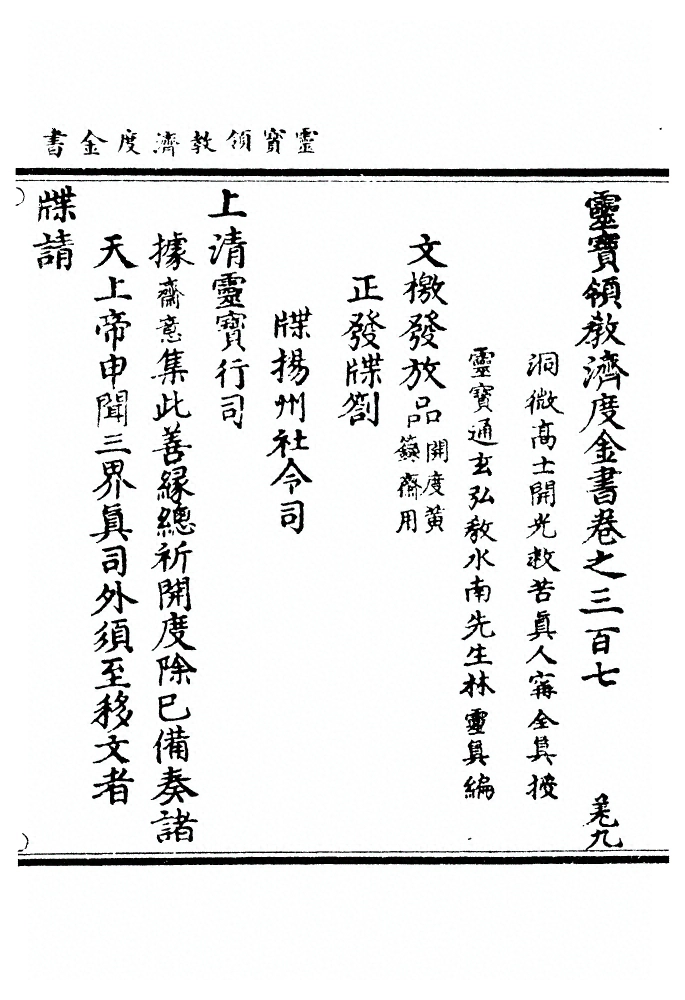 靈寶領教濟度金書
靈寶領教濟度金書卷之三百七
羌九
洞微高士開光救苦眞人甯全眞授
靈寶通玄弘教水南先生林靈眞編
文檄發放品開度黃籙齋用
正發牒劄
牒揚州社令司
上清靈寶行司
據齋意集此善緣總祈開度除已備奏諸
天上帝申聞三界眞司外須至移文者
牒請